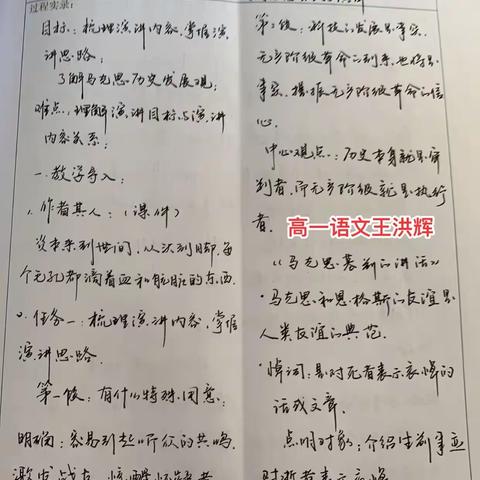 过程实录:
目标:梳理演讲内容,掌握演
讲思路;
了解马克思历史发展观;
难点:理解演讲目标与演讲
内容关系;
一、教学导入:
1、作者其人:(课件)
资本来到世间,从头到脚,每
个毛孔都滴着血和肮脏的东西.
2、任务一:梳理演讲内容,掌握
演讲思路.
第一段:有什么特殊用意:
明确:容易引起听众的共鸣,
激发战友
第2段:科技的发展是事实,
无产阶级革命的到来,也将是
事实,提振无产阶级革命的信
心.
中心观点:历史本身就是审
判者,而无产阶级就是执行
者.
高一语文王洪辉
《马克思墓前的讲话》
·马克思和恩格斯的友谊是
人类友谊的典范.
·悼词:是对死者表示哀悼的
话或文章.
点明对象:介绍生前事迹
对逝者表示哀悼